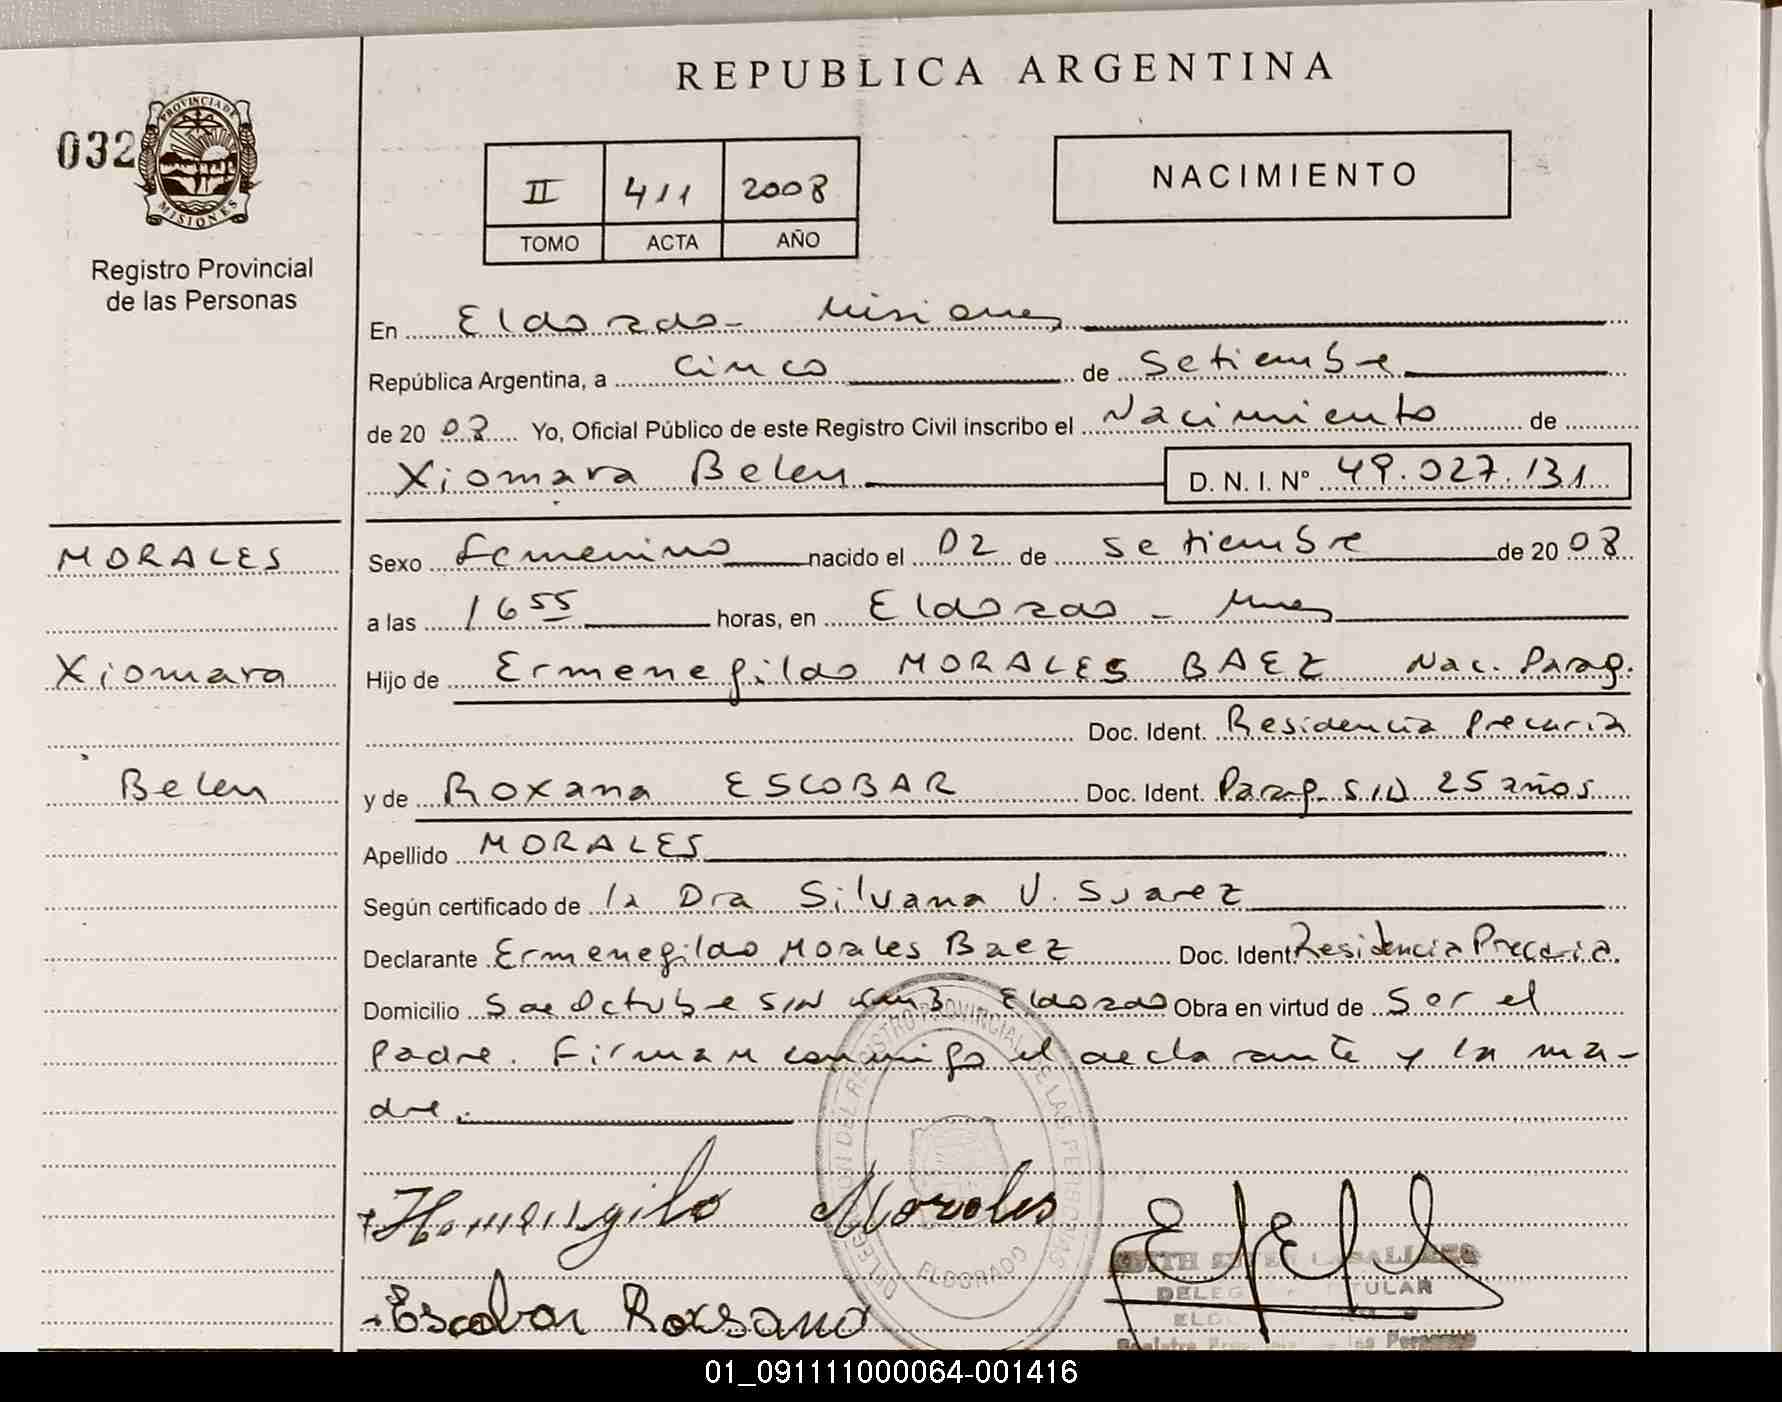 REPUBLICA ARGENTINA
032
PROVINCIA DE
MISIONES
Registro Provincial
de las Personas
II 411 2008
TOMO ACTA AÑO
NACIMIENTO
En Eldorado - Misiones
República Argentina, a Cinco de Setiembre
de 20 08 Yo, Oficial Público de este Registro Civil inscribo el Nacimiento de
Xiomara Belen D. N. I. Nº 49.027.131
MORALES
Xiomara
Belen
Sexo Femenino nacido el 02 de setiembre de 20 08
a las 1655 horas, en Eldorado - Mnes
Hijo de Ermenegildo MORALES BAEZ Nac. Parag.
Doc. Ident. Residencia Precaria
y de Roxana ESCOBAR Doc. Ident. Parag. S/D 25 años
Apellido MORALES
Según certificado de la Dra Silvana V. Suarez
Declarante Ermenegildo Morales Baez Doc. Ident. Residencia Precaria.
Domicilio 5 de Octubre S/N Km 3 Eldorado Obra en virtud de Ser el
padre. Firman conmigo el declarante y la ma-
dre.
Morales
Escobar Roxsana
DELEGACION DEL REGISTRO PROVINCIAL DE LAS PERSONAS
ELDORADO
01_091111000064-001416